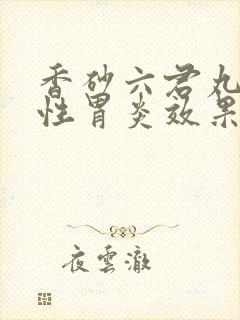 香砂六君丸
性胃炎效果
夜雲澈